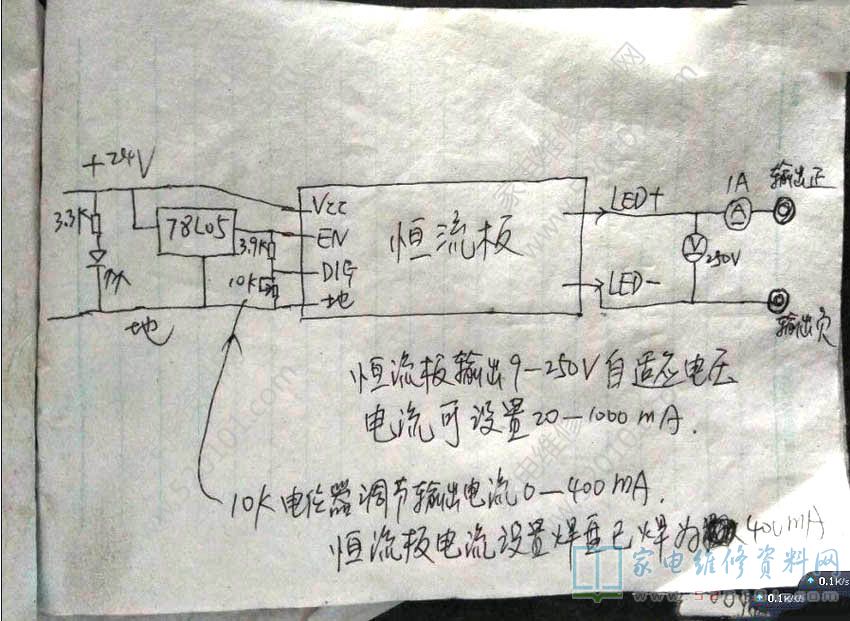 +24V
3.3K
78L05
3.9K
10K
地
VCC
EN
DIG
地
恒流板
LED+
LED-
1A
A
V
250V
输出正
输出负
恒流板输出9-250V自适应电压
电流可设置20-1000mA.
10K电位器调节输出电流0-400mA.
恒流板电流设置焊盘已焊为 400mA
家电维修资料网
0.1K/s
0.1K/s